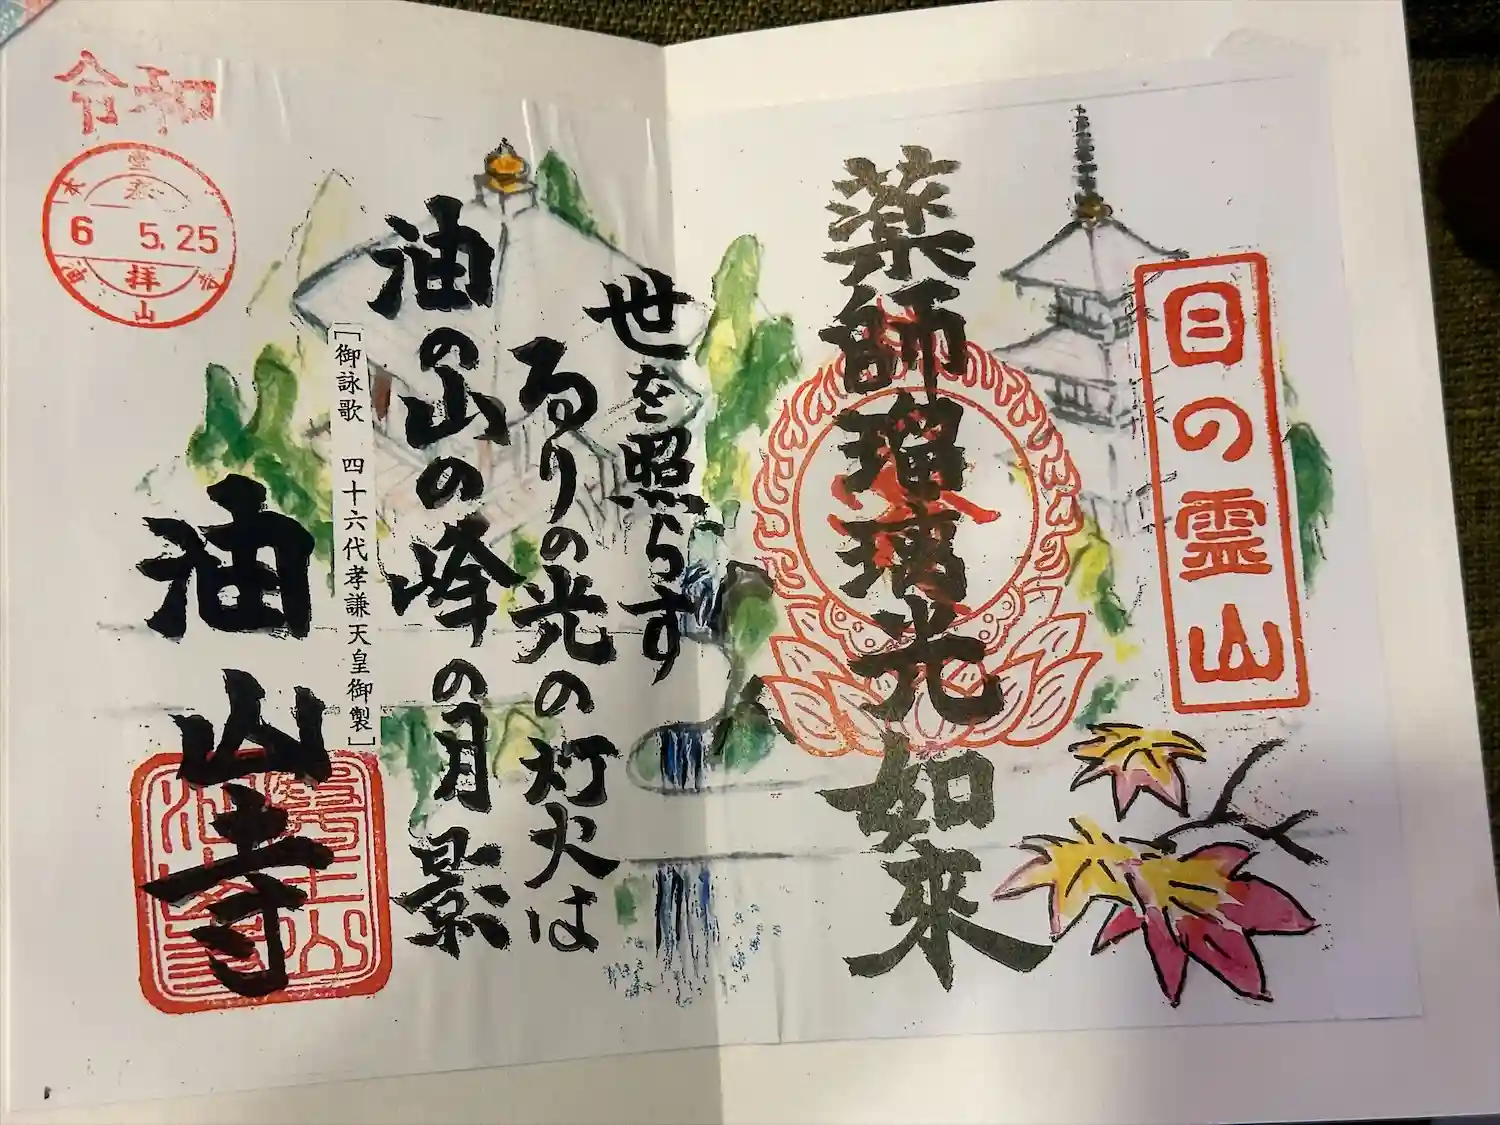 目の霊山
薬師瑠璃光如來
世を照らす
るりの光の灯火は
油の山の峰の月影
「御詠歌 四十六代孝謙天皇御製」
油山寺
令和
6 5.25
拝
山